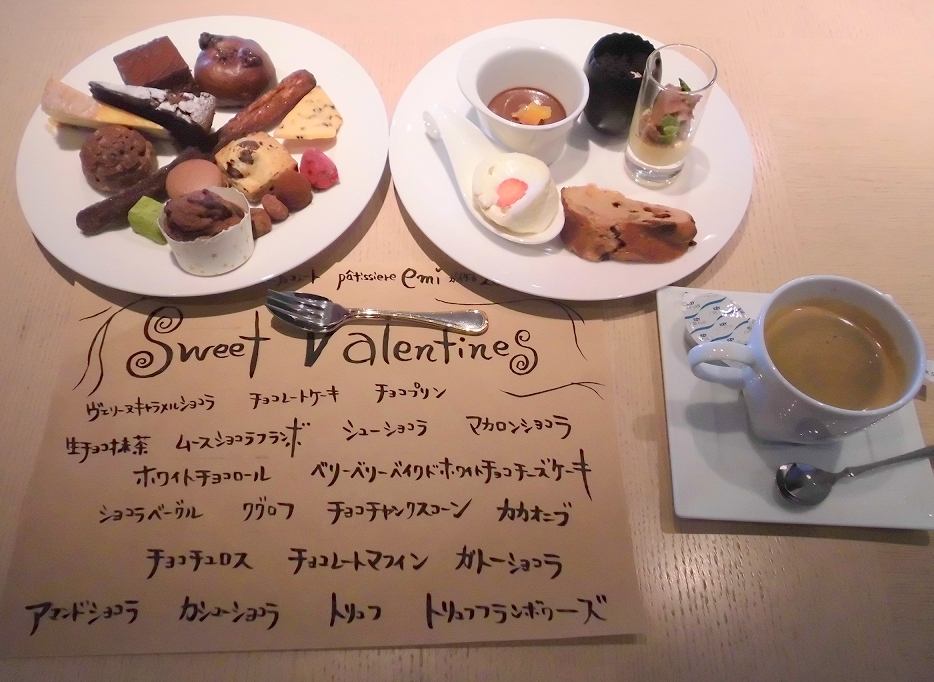 pâtissiere emi
Sweet Valentines
ヴェリーヌキャラメルショコラ チョコレートケーキ チョコプリン
生チョコ抹茶 ムースショコラフランボ シューショコラ マカロンショコラ
ホワイトチョコロール ベリーベリーベイクドホワイトチョコチーズケーキ
ショコラベーグル クグロフ チョコチャンクスコーン カカオニブ
チョコチュロス チョコレートマフィン ガトーショコラ
アマンドショコラ カシューショコラ トリュフ トリュフフランボワーズ